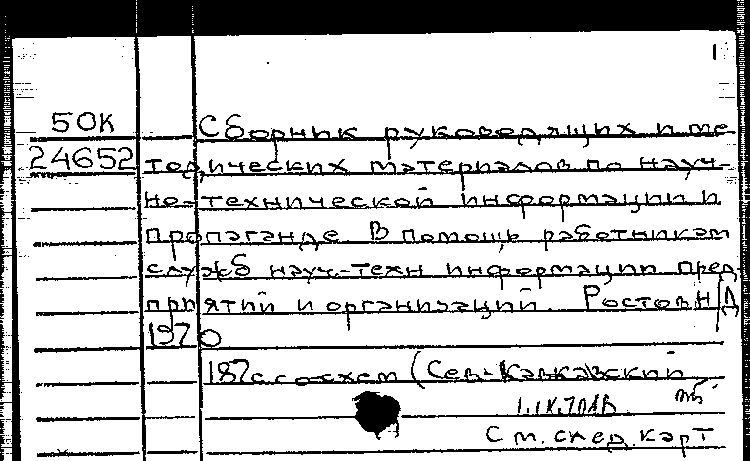 50К Сборник руководящих и ме-
24652 тодических материалов по науч-
но-технической информации и
пропаганде. В помощь работникам
служб науч.-техн информации пред-
приятий и организаций. Ростов н/Д
1970
187с со схем (Сев.-Кавказский
1.IX.70
См. след. карт